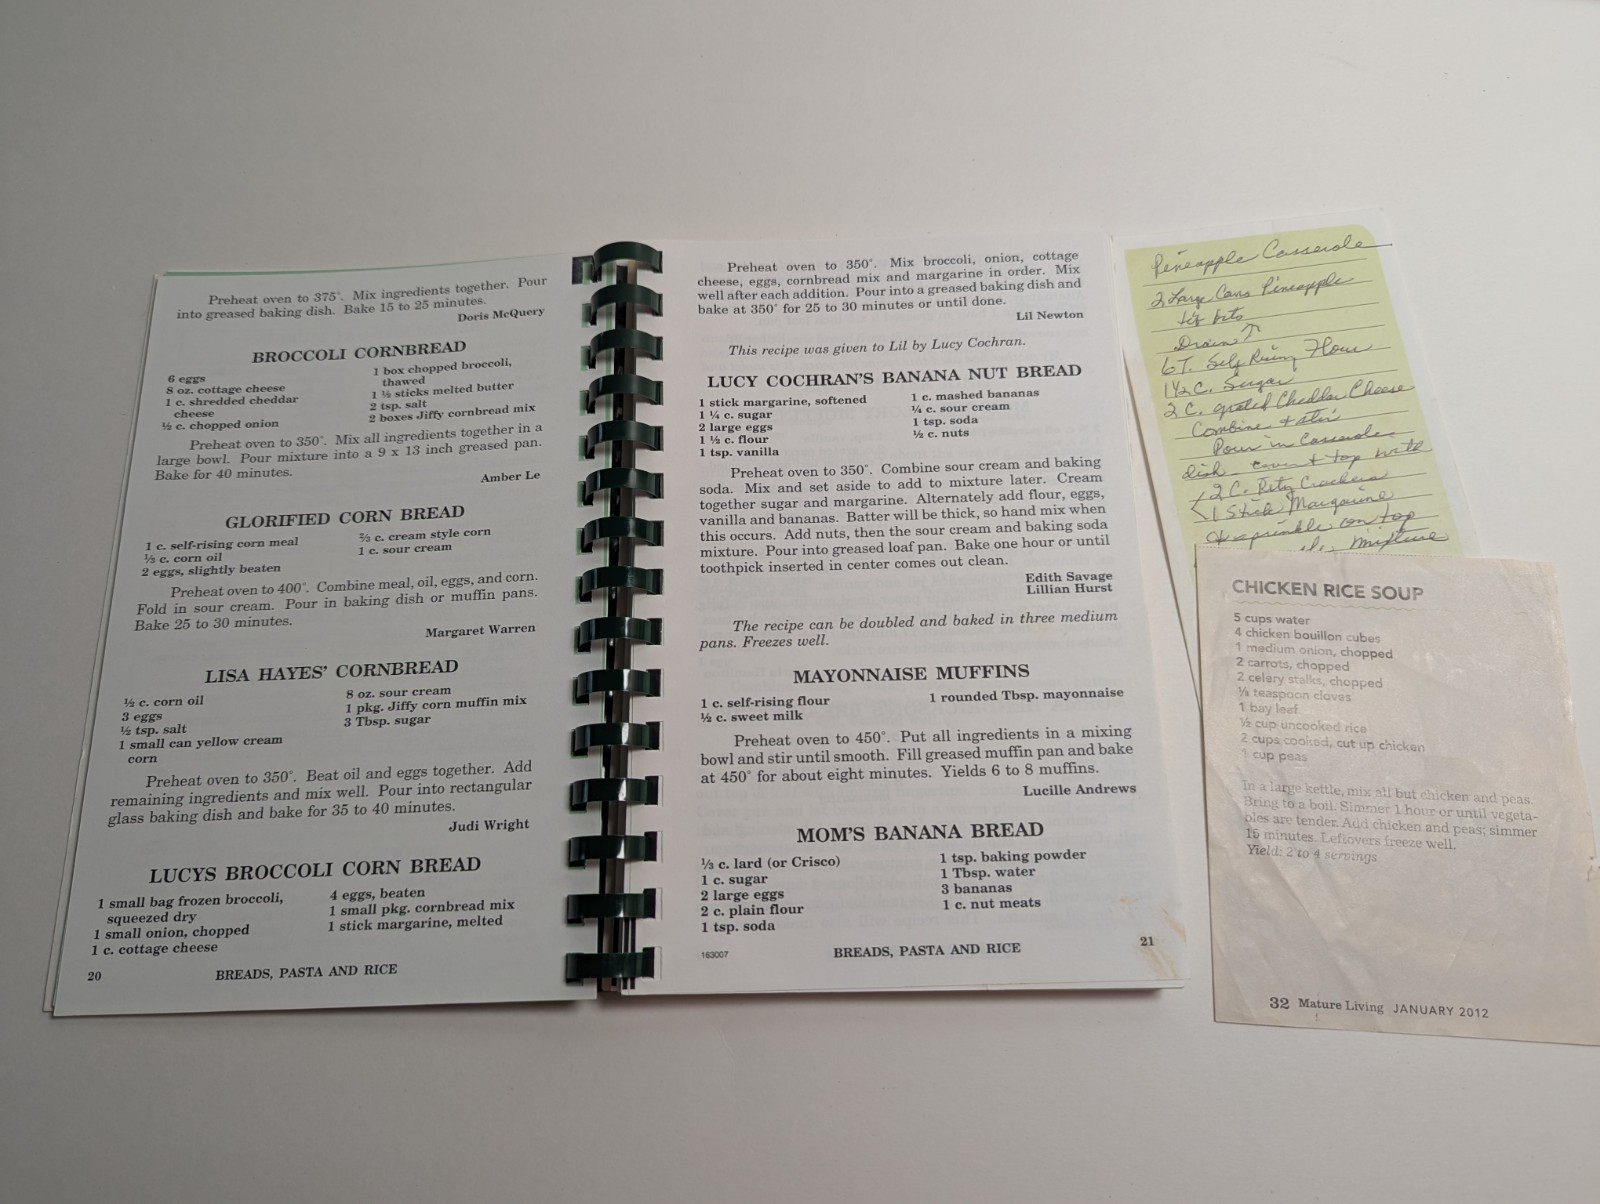 Preheat oven to 375°. Mix ingredients together. Pour
into greased baking dish. Bake 15 to 25 minutes.
Doris McQuery
BROCCOLI CORNBREAD
6 eggs
8 oz. cottage cheese
1 c. shredded cheddar
cheese
½ c. chopped onion
1 box chopped broccoli,
thawed
1 ½ sticks melted butter
2 tsp. salt
2 boxes Jiffy cornbread mix
Preheat oven to 350°. Mix all ingredients together in a
large bowl. Pour mixture into a 9 x 13 inch greased pan.
Bake for 40 minutes.
Amber Le
GLORIFIED CORN BREAD
1 c. self-rising corn meal
⅓ c. corn oil
2 eggs, slightly beaten
⅔ c. cream style corn
1 c. sour cream
Preheat oven to 400°. Combine meal, oil, eggs, and corn.
Fold in sour cream. Pour in baking dish or muffin pans.
Bake 25 to 30 minutes.
Margaret Warren
LISA HAYES' CORNBREAD
½ c. corn oil
3 eggs
½ tsp. salt
1 small can yellow cream
corn
8 oz. sour cream
1 pkg. Jiffy corn muffin mix
3 Tbsp. sugar
Preheat oven to 350°. Beat oil and eggs together. Add
remaining ingredients and mix well. Pour into rectangular
glass baking dish and bake for 35 to 40 minutes.
Judi Wright
LUCYS BROCCOLI CORN BREAD
1 small bag frozen broccoli,
squeezed dry
1 small onion, chopped
1 c. cottage cheese
4 eggs, beaten
1 small pkg. cornbread mix
1 stick margarine, melted
20
BREADS, PASTA AND RICE
Preheat oven to 350°. Mix broccoli, onion, cottage
cheese, eggs, cornbread mix and margarine in order. Mix
well after each addition. Pour into a greased baking dish and
bake at 350° for 25 to 30 minutes or until done.
Lil Newton
This recipe was given to Lil by Lucy Cochran.
LUCY COCHRAN'S BANANA NUT BREAD
1 stick margarine, softened
1 ¼ c. sugar
2 large eggs
1 ½ c. flour
1 tsp. vanilla
1 c. mashed bananas
¼ c. sour cream
1 tsp. soda
½ c. nuts
Preheat oven to 350°. Combine sour cream and baking
soda. Mix and set aside to add to mixture later. Cream
together sugar and margarine. Alternately add flour, eggs,
vanilla and bananas. Batter will be thick, so hand mix when
this occurs. Add nuts, then the sour cream and baking soda
mixture. Pour into greased loaf pan. Bake one hour or until
toothpick inserted in center comes out clean.
Edith Savage
Lillian Hurst
The recipe can be doubled and baked in three medium
pans. Freezes well.
MAYONNAISE MUFFINS
1 c. self-rising flour
½ c. sweet milk
1 rounded Tbsp. mayonnaise
Preheat oven to 450°. Put all ingredients in a mixing
bowl and stir until smooth. Fill greased muffin pan and bake
at 450° for about eight minutes. Yields 6 to 8 muffins.
Lucille Andrews
MOM'S BANANA BREAD
⅓ c. lard (or Crisco)
1 c. sugar
2 large eggs
2 c. plain flour
1 tsp. soda
1 tsp. baking powder
1 Tbsp. water
3 bananas
1 c. nut meats
163007
BREADS, PASTA AND RICE
21
Pineapple Casserole
2 Large Cans Pineapple
tid bits
Drain ↑
6 T. Self Rising Flour
1½ C. Sugar
2 C. grated Cheddar Cheese
Combine + stir
Pour in Casserole
dish top with
2 C. Ritz Crackers
1 Stick Margarine
sprinkle on top
mixture
CHICKEN RICE SOUP
5 cups water
4 chicken bouillon cubes
1 medium onion, chopped
2 carrots, chopped
2 celery stalks, chopped
teaspoon cloves
1 bay leaf
½ cup uncooked rice
2 cups cooked, cut up chicken
1 cup peas
In a large kettle, mix all but chicken and peas.
Bring to a boil. Simmer 1 hour or until vegeta-
bles are tender. Add chicken and peas; simmer
15 minutes. Leftovers freeze well.
Yield: 2 to 4 servings
32 Mature Living JANUARY 2012